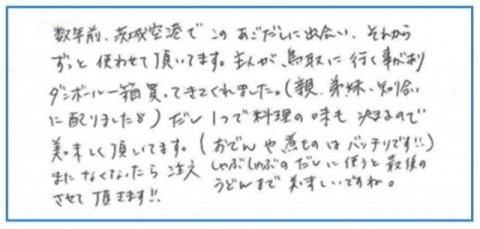 数年前、茨城空港でこのあごだしに出会い、それから
ずっと使わせて頂いてます。主人が、鳥取に行く事があり
ダンボール一箱買ってきてくれました。(親、弟妹、知り合い
に配りました)だし1つで料理の味も決まるので
美味しく頂いてます。(おでんや煮ものはバッチリです!!)
またなくなったら注文 しゃぶしゃぶのだしに使うと最後の
させて頂きます!! うどんまで美味しいですね。